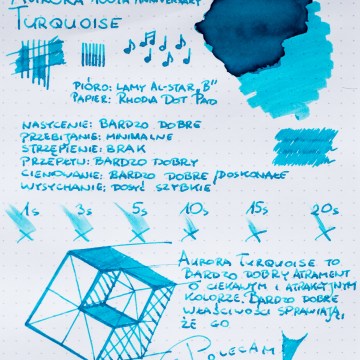 Aurora 100th Anniversary
Turquoise
Pióro: Lamy Al-Star, "B"
Papier: Rhodia Dot Pad
Nasycenie: Bardzo dobre
Przebitanie: Minimalne
Strzępienie: Brak
Przepływ: Bardzo dobry
Cieniowanie: Bardzo dobre/doskonałe
Wysychanie: Dosyć szybkie
1s 3s 5s 10s 15s 20s
Aurora Turquoise to
bardzo dobry atrament
o ciekawym i atrakcyjnym
kolorze. Bardzo dobre
właściwości sprawiają,
że go
Polecam